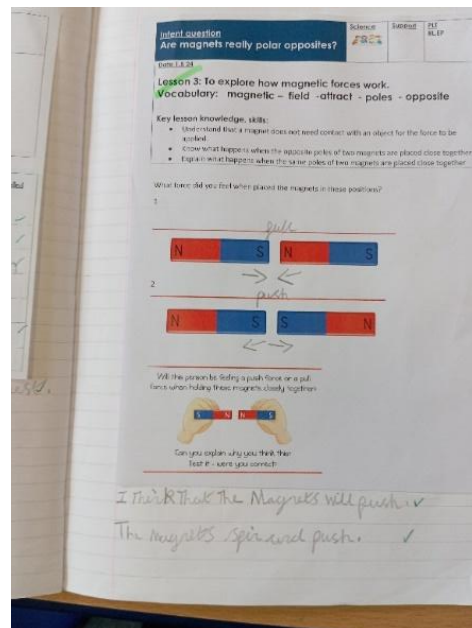 Intent question
Are magnets really polar opposites?
Science
Support
Lesson 3: To explore how magnetic forces work.
Vocabulary: magnetic – field -attract - poles - opposite
Key lesson knowledge, skills:
• Understand that a magnet does not need contact with an object for the force to be
applied.
• Know what happens when the opposite poles of two magnets are placed close together
• Explain what happens when the same poles of two magnets are placed close together
What force did you feel when placed the magnets in these positions?
1
pull
N S N S
2
push
N S S N
Will this person be feeling a push force or a pull
force when holding these magnets closely together?
S N N S
Can you explain why you think this?
Test it - were you correct?
I think That the Magnets will push.
The magnets spin and push.